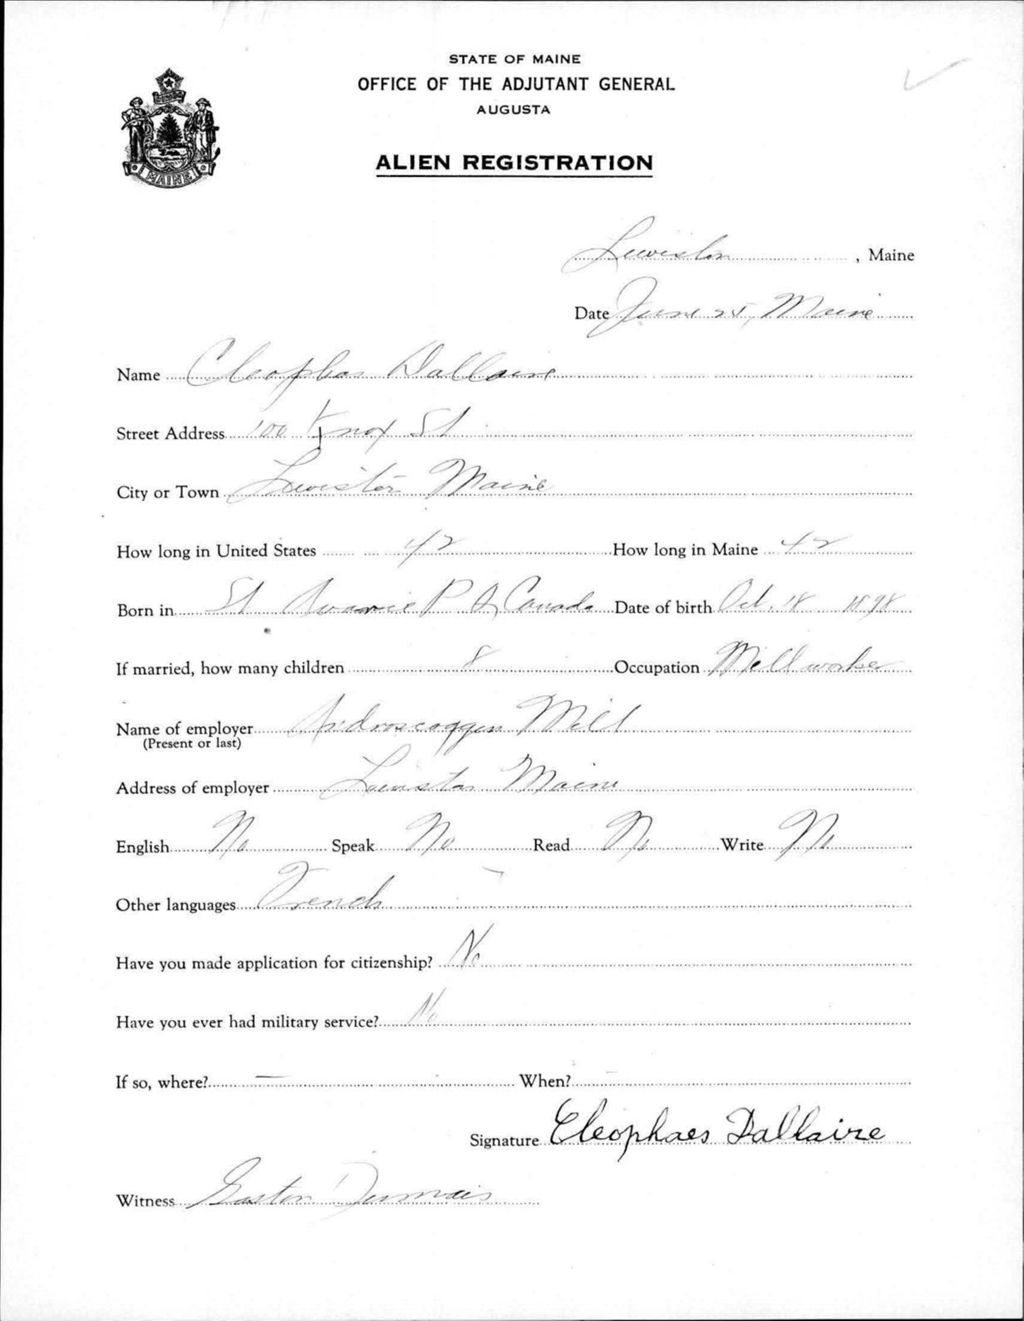 STATE OF MAINE
OFFICE OF THE ADJUTANT GENERAL
AUGUSTA
MAINE
ALIEN REGISTRATION
Lewiston, Maine
Date June 25, Maine
Name Cleophas Dallaire
Street Address 100 Knox St
City or Town Lewiston Maine
How long in United States 42 How long in Maine 42
Born in St P Q Canada Date of birth Oct. 18 1898
If married, how many children 8 Occupation Mill worker
Name of employer Androscoggin Mill
(Present or last)
Address of employer Lewiston Maine
English No Speak No Read No Write No
Other languages French
Have you made application for citizenship? No
Have you ever had military service? No
If so, where? — When? —
Signature Cleophaes Dallaire
Witness Gaston Dumais